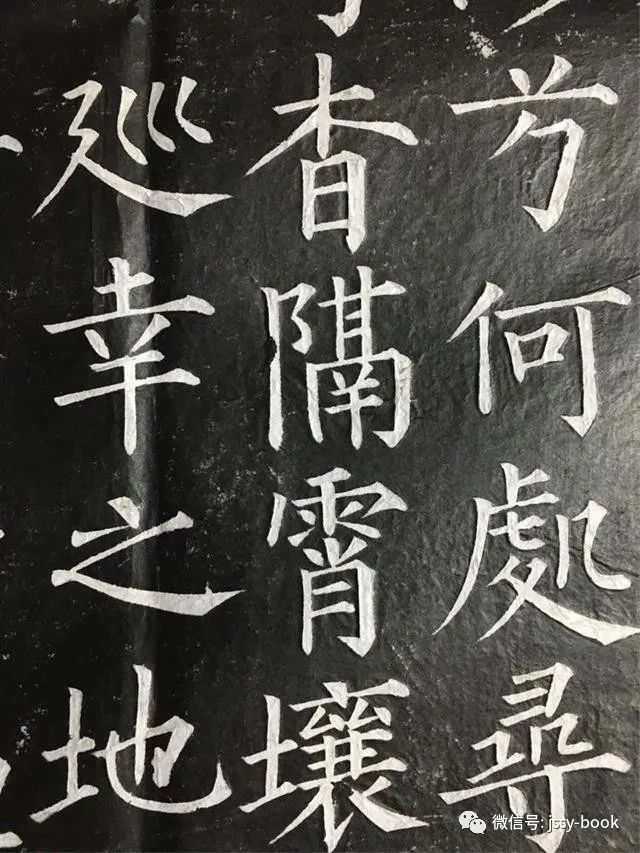 兮何處尋
杳隔霄壤
巡幸之地
微信号: jssy-book